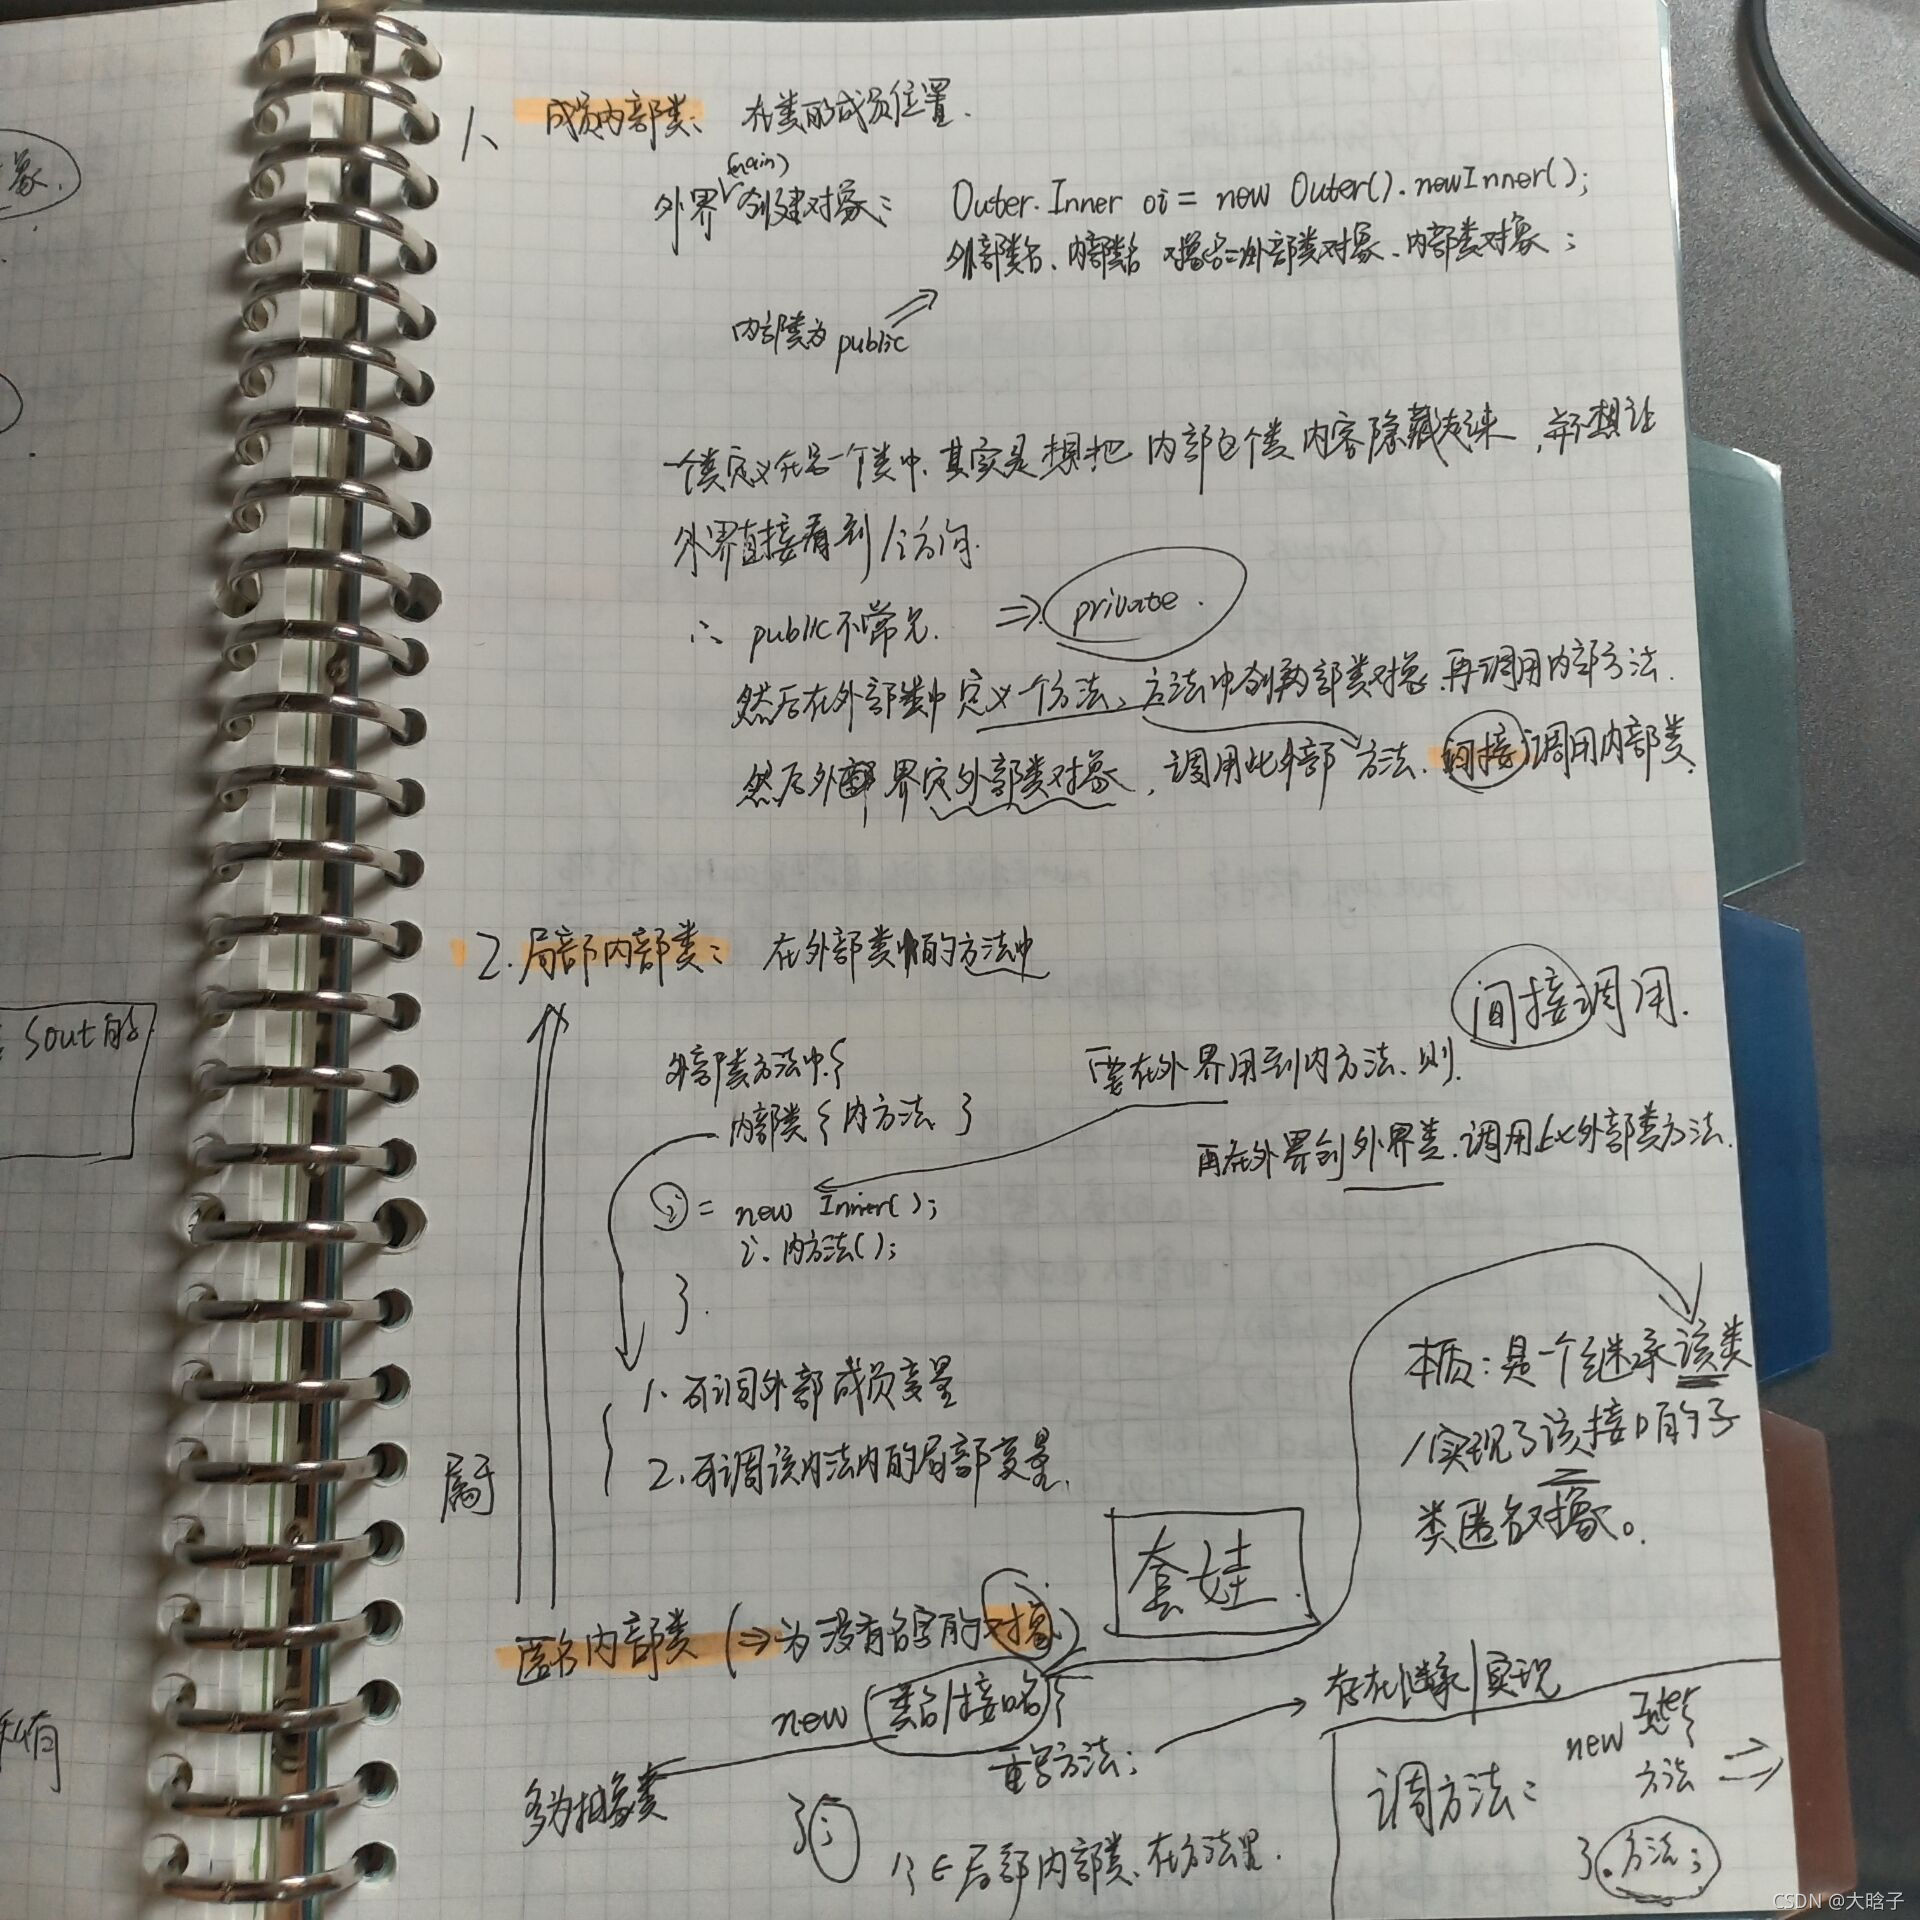 1、成员内部类：在类的成员位置.
(main)
外界创建对象： Outer.Inner oi = new Outer().newInner();
外部类名、内部类名 对象名=外部类对象、内部类对象；
内部类为 public
一个类定义在另一个类中、其实是想把 内部这个类 内容隐藏起来，并不想让
外界直接看到/访问.
∴ public不常见. ⇒ private.
然后在外部类中 定义一个方法、方法中创内部类对象、再调用内部方法.
然后外界定外部类对象，调用此外部方法. 间接调用内部类.
2. 局部内部类： 在外部类中的方法中
间接调用.
外部类方法中{
要在外界用到内方法、则.
内部类{ 内方法 }
再在外界创外界类、调用此外部类方法.
i = new Inner();
i. 内方法();
}.
1、可调外部成员变量
2、可调该方法内的局部变量.
属于
本质：是一个继承该类
/实现了该接口的子
类匿名对象。
套娃
匿名内部类 (⇒为没有名字的对象)
new 类名/接口名{
存在继承/实现
重写方法;
多为抽象类
};
∈局部内部类、在方法里.
调方法：
new Inter{
方法 ⇒
}.方法;
象.
Sout的
私有
CSDN @大晗子